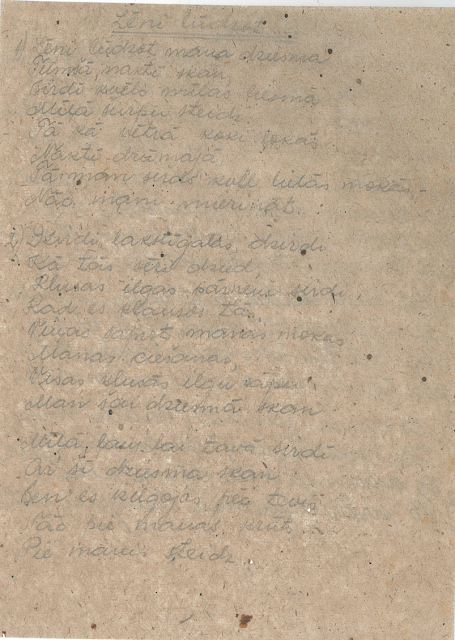 Lēni lūdzot
1) Lēni lūdzot mana dziesma
Tumšā naktī skan,
Sirdī kvēlo mīlas liesma
Mīlā turpu steidz.
Tā kā vētrā koki lokās
Naktī drūmajā
Tā man sirds kvēl lielās mokās
Nāc mani mierināt.
2) Dzirdi lakstīgalas, dzirdi
Kā tās sēri dzied,
Klusas ilgas pārņem sirdi,
Kad es klausos tās.
Viņas saprot manas mokas
Manas ciešanas,
Visas klusās ilgu sāpes
Man šai dziesmā skan
Mīlā, lauj lai tavā sirdī
Ar šī dziesma skan
Ben es ilgojos pēc tevi
Nāc pie manas krūts,
Pie manis steidz